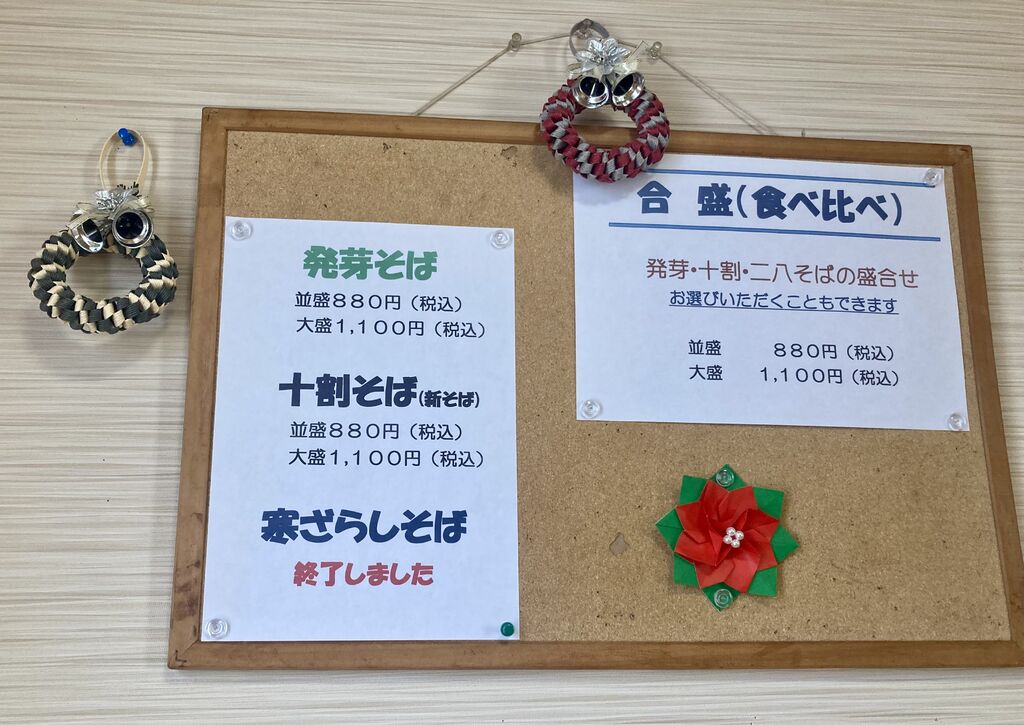 発芽そば
並盛880円（税込）
大盛1,100円（税込）
十割そば(新そば)
並盛880円（税込）
大盛1,100円（税込）
寒ざらしそば
終了しました
合 盛(食べ比べ)
発芽・十割・二八そばの盛合せ
お選びいただくこともできます
並盛 880円（税込）
大盛 1,100円（税込）